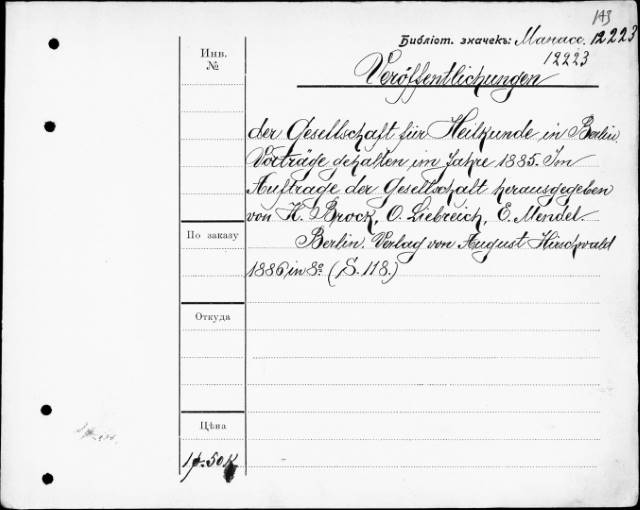 143
Библіот. значекъ: Манасс. 12223
12223
Инв.
№
Veröffentlichungen
der Gesellschaft für Heilkunde in Berlin.
Vorträge gehalten im Jahre 1885. Im
Auftrage der Gesellschaft herausgegeben
von H. Brock, O. Liebreich, E. Mendel.
По заказу
Berlin. Verlag von August Hirschwald
1886, in 8° (S. 118.)
Откуда
Цѣна
1р. 50к